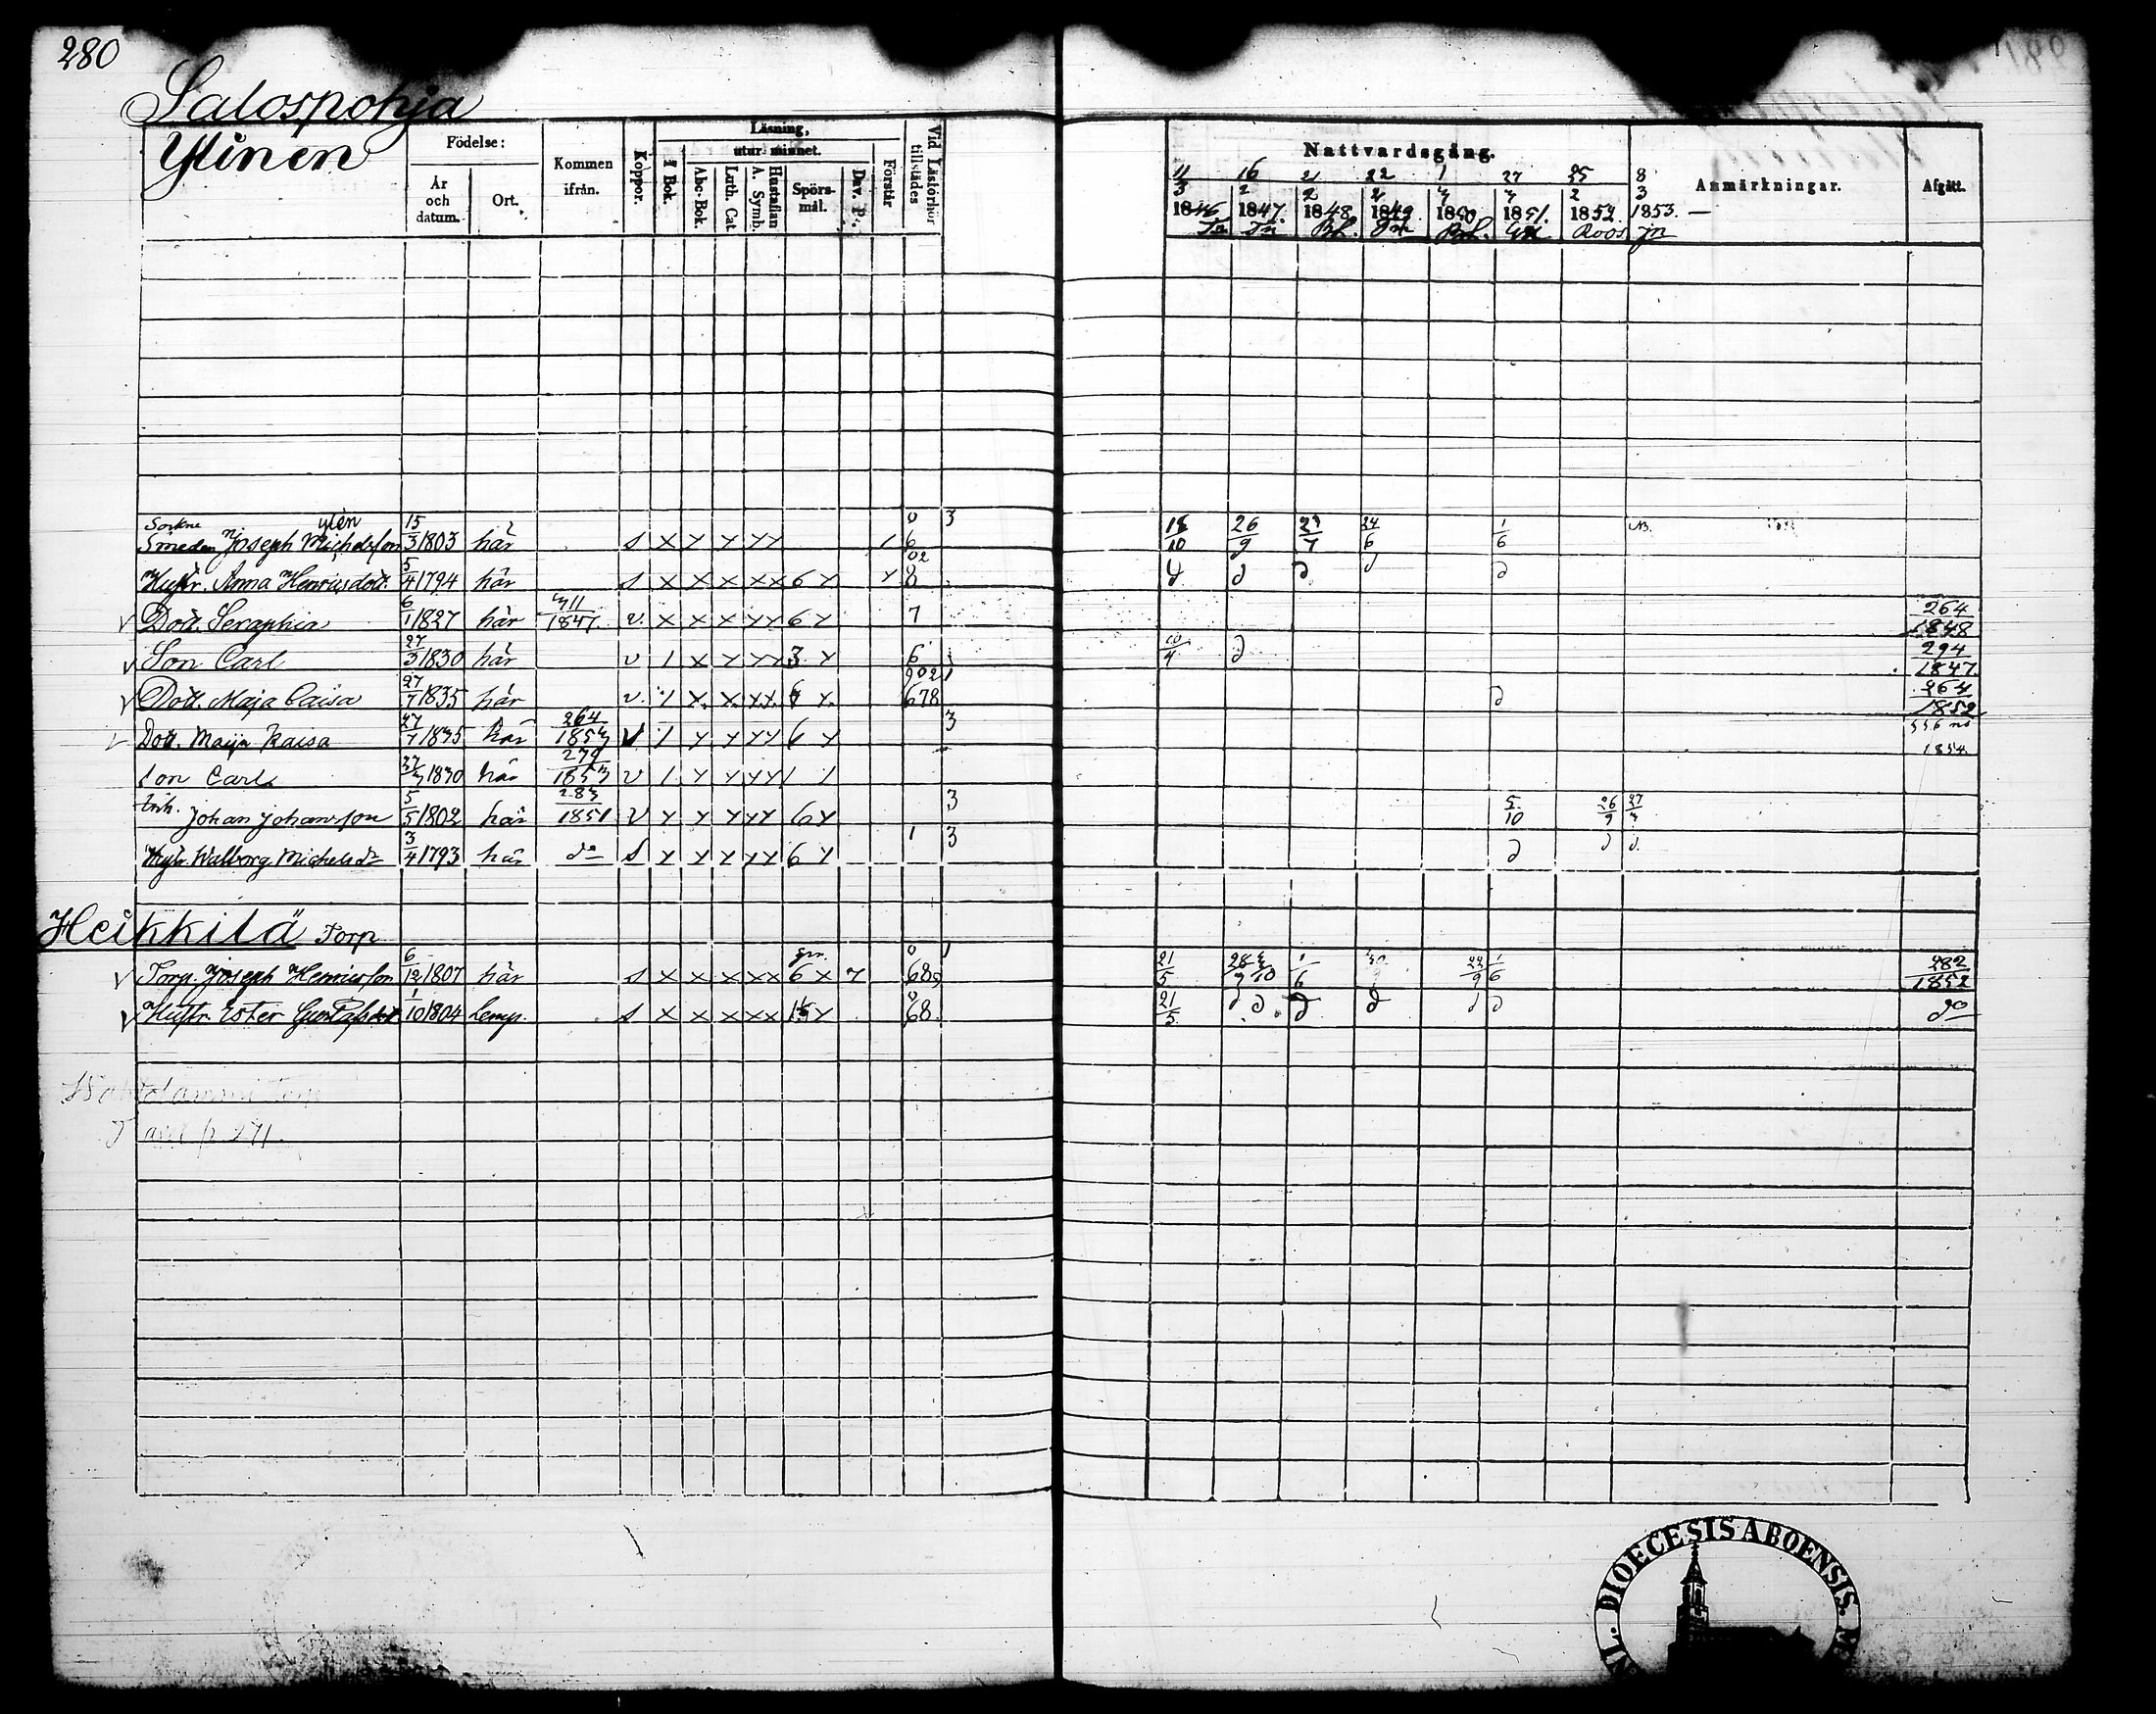 280
Salospohja
Ylinen
Födelse:
År och datum.
Ort.
Kommen ifrån.
Koppor.
Läsning,
I Bok.
utur minnet.
Abc-Bok.
Luth. Cat
Hustaflan A. Symb.
Spörs-mål.
Dav. P.
Förstår
Vid Läsförhör tillstädes
Nattvardsgång.
11 16 21 22 1 27 25 8
3 2 2 2 4 4 2 3
1846 1847. 1848 1849 1850 1851. 1852. 1853. —
Roos
Anmärkningar.
Afgått.
Sockne ylén
Smeden Joseph Michelsson 15/3 1803 här s x y y y y / 0 6 3 18/10 26/9 24/6 1/6 NB.
Hustr. Anna Henricsdott. 5/4 1794 här s x x x x x 6 y y 02 8 d d d d
v Dott. Seraphia 6/1 1827 här 1847. v. x x x y y 6 y 7 264/1848
v Son Carl 27/3 1830 här v / x y y y 3 y 6 10/4 d 294/1847.
v Dott. Maja Caisa 27/7 1835 här v. / x x x x 6 y. 678 d 264/1852
Dott. Maija Kaisa 27/7 1835 här 264/1853 v / y y y y 6 y 3 1854
Son Carl 27/3 1830 här 279/1853 v / y y y y / /
Inh. Johan Johansson 5/5 1802 här 283/1851 v y y y y y 6 y 3 5/10 26/9 27/3
Hustr. Walborg Michelsdr 3/4 1793 här do s y y y y y 6 y 1 3 d d d.
Heikkilä Torp
v Torp. Joseph Henricsson 6/12 1807 här s x x x x x 6 x 7 0 1 21/5 1/6 22/9 1/6 282/1852
v Hustr. Ester Gustafsdott 1/10 1804 Lemp. s x x x x x y 68. 21/5 d d d d d d do
p. 271.
DIOECESIS ABOENSIS.